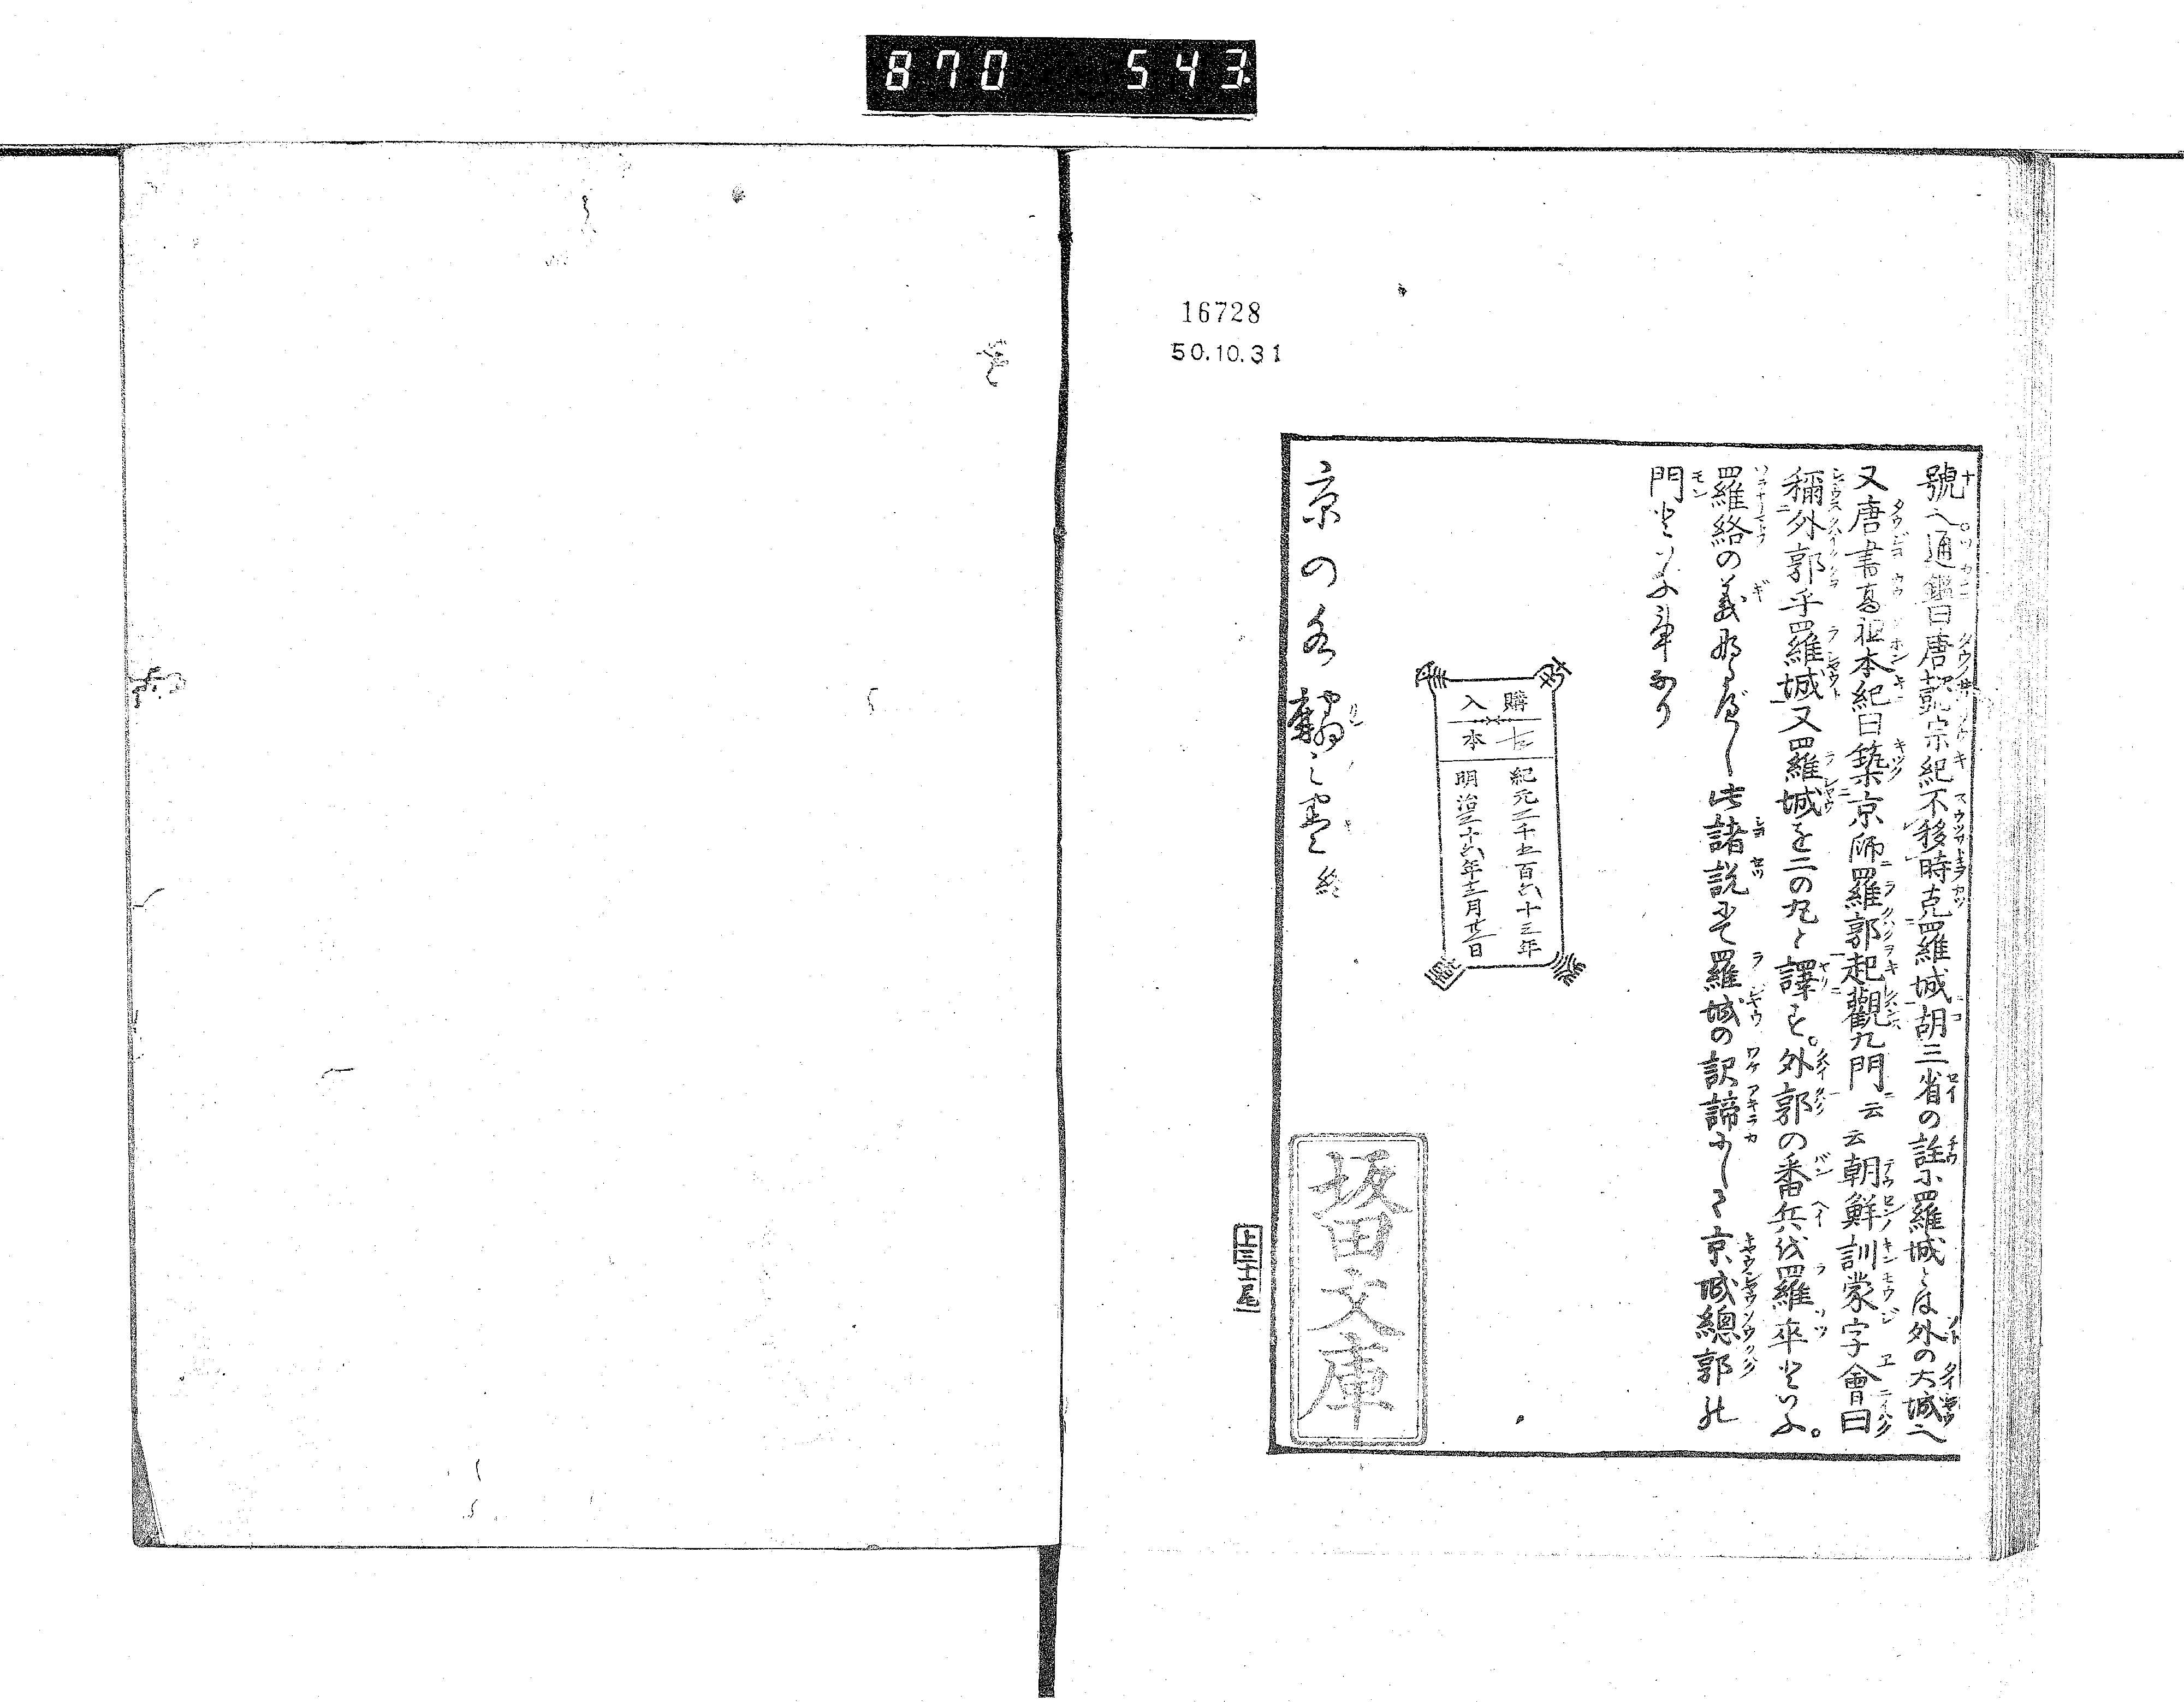 870 543
16728
50.10.31
號へ通鑑曰唐懿宗紀不移時克羅城胡三省の註ニ羅城とは外の大城へ
又唐書高祖本紀曰築京師羅郭起觀九門云云朝鮮訓蒙字會曰
稱外郭乎羅城又羅城を二の丸と譯す。外郭の番兵伐羅卒といふ。
羅絡の義なるべし此諸説にて羅城の訳諦かにして京城總郭の
門といふ事なり
購入
本
紀元二千五百六十三年
明治三十六年十二月廿二日
京の水
終
坂田文庫
上三十尾